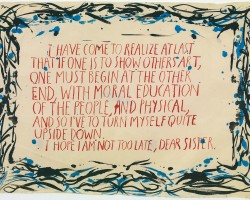 I HAVE COME TO REALIZE AT LAST
THAT IF ONE IS TO SHOW OTHERS ART,
ONE MUST BEGIN AT THE OTHER
END, WITH MORAL EDUCATION
OF THE PEOPLE, AND PHYSICAL,
AND SO I'VE TO TURN MYSELF QUITE
UPSIDE DOWN.
I HOPE I AM NOT TOO LATE, DEAR SISTER.